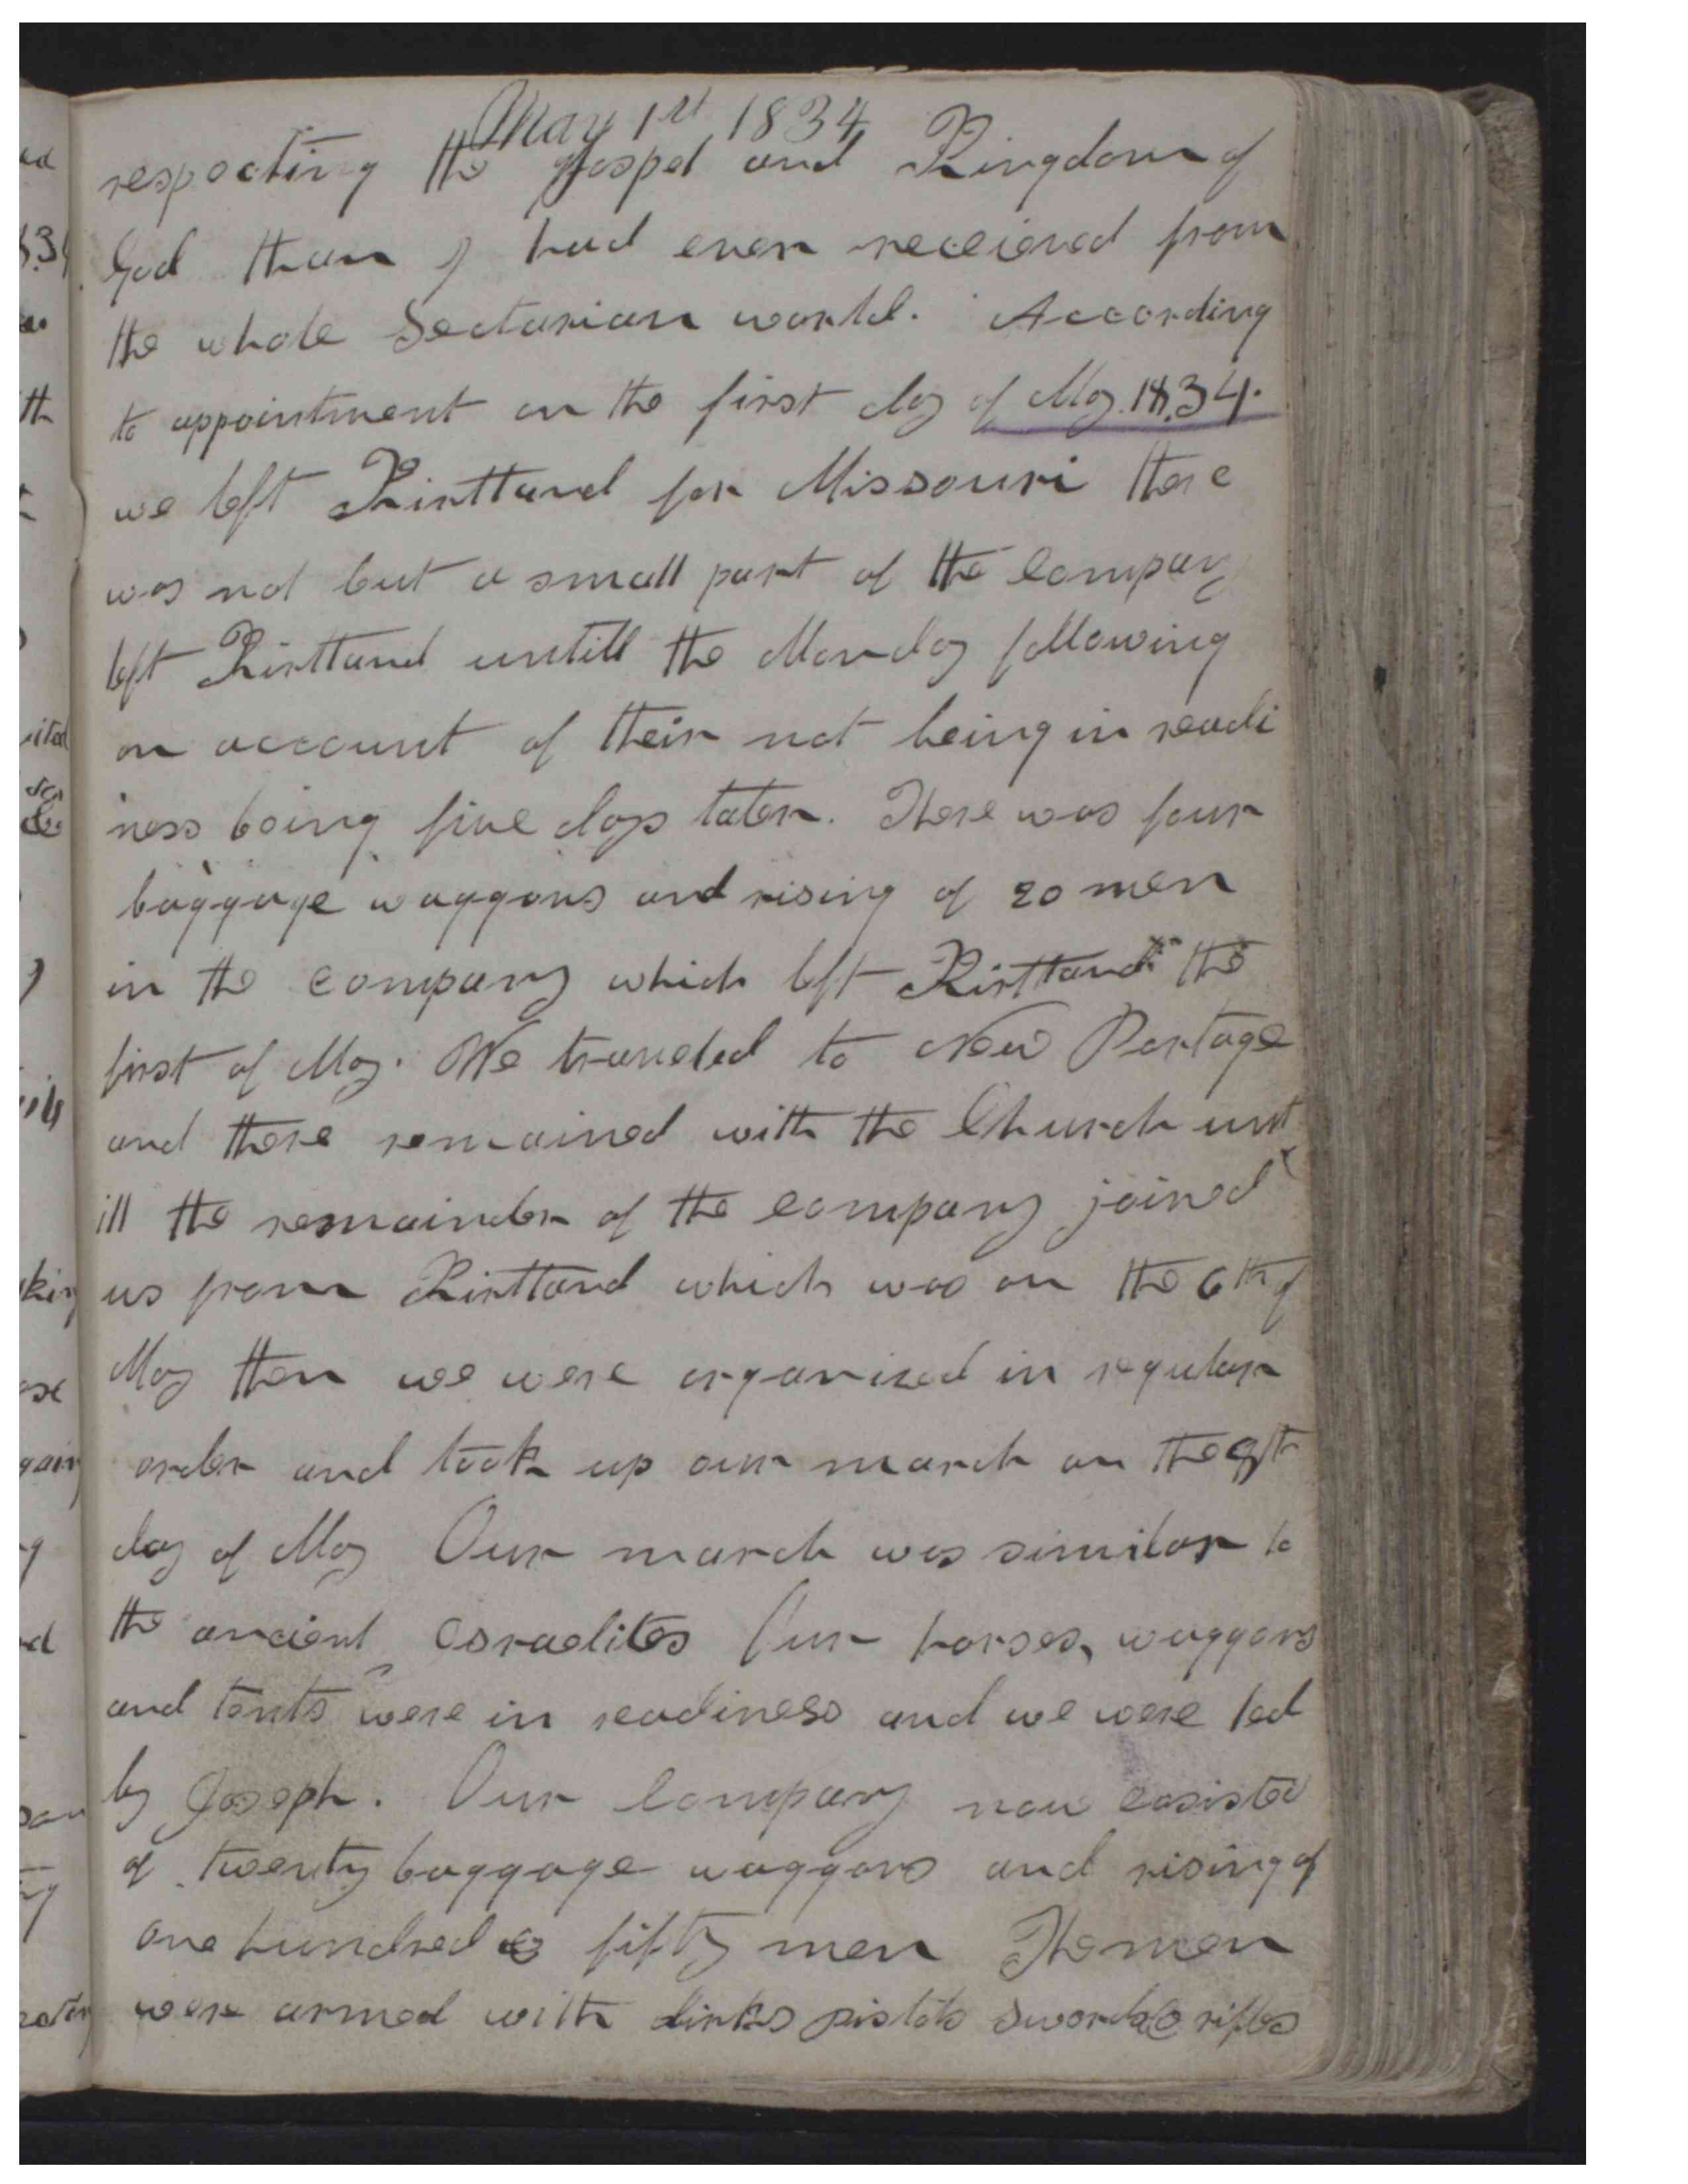 May 1st 1834
respecting the gospel and Kingdom of
God than I had ever received from
the whole Sectarian world. According
to appointment on the first day of May 1834.
we left Kirttand for Missouri there
was not but a small part of the Company
left Kirttand untill the Monday following
on account of their not being in readi
ness being five days later. There was four
baggage waggons and rising of 20 men
in the company which left Kirttand the
first of May. We traveled to New Portage
and there remained with the Church unt
ill the remainder of the company joined
us from Kirttand which was on the 6th of
May then we were organized in regular
order and took up our march on the 8th
day of May Our march was similar to
the ancient Esraelites Our horses, waggons
and tents were in readiness and we were led
by Joseph. Our Company now cosisted
of twenty baggage waggons and rising of
one hundred & fifty men The men
were armed with dirks pistols swords & rifles